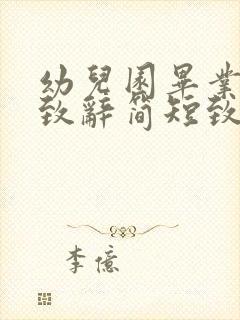 幼兒園畢業
致辭简短致
李億